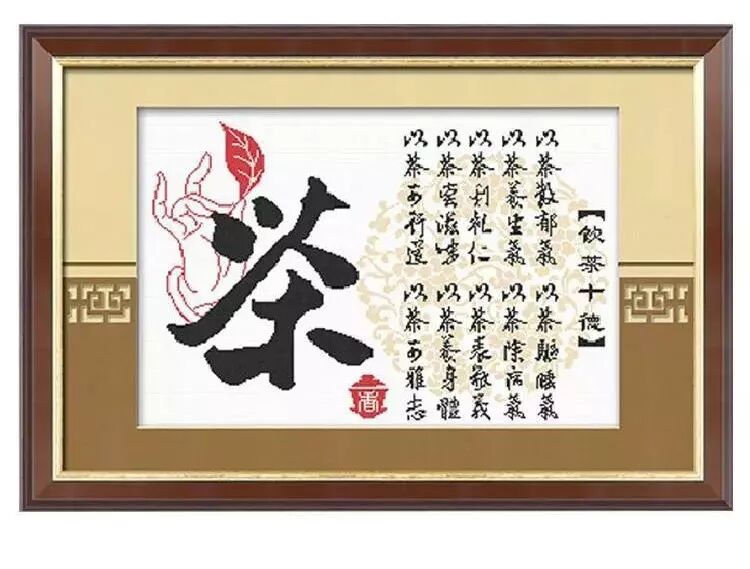 【飲茶十德】
以茶散郁氣
以茶驅睡氣
以茶養生氣
以茶除病氣
以茶利礼仁
以茶表敬義
以茶嘗滋味
以茶養身體
以茶可行道
以茶可雅志
茶